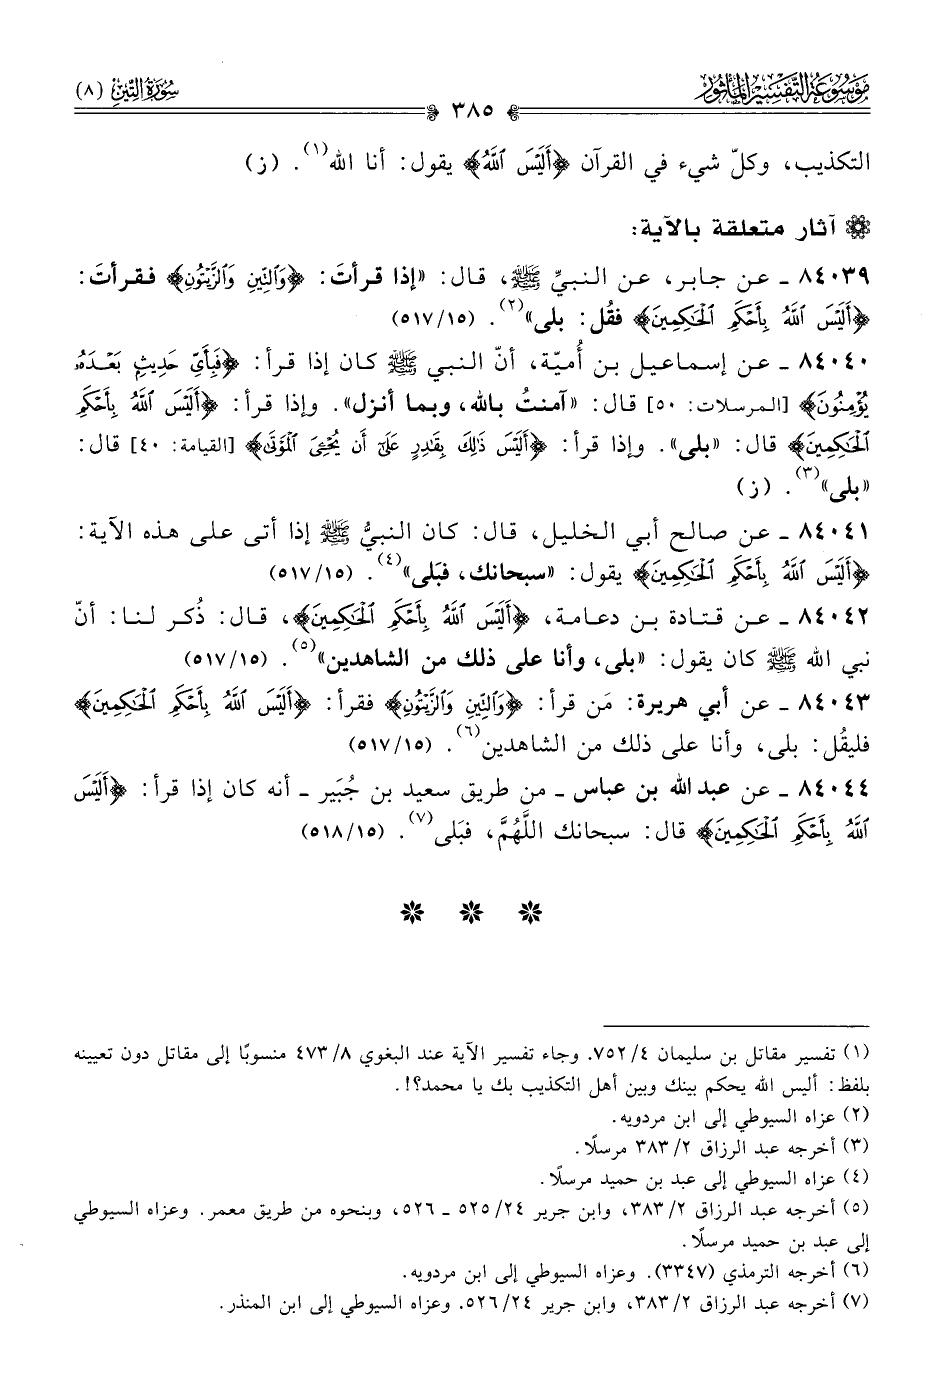 موسوعة التفسير المأثور
٣٨٥
سورة التين (٨)
التكذيب، وكلّ شيء في القرآن ﴿أَلَيْسَ ٱللَّهُ﴾ يقول: أنا الله(١). (ز)
آثار متعلقة بالآية:
٨٤٠٣٩ ـ عن جابر، عن النبيِّ ﷺ، قال: «إذا قرأتَ: ﴿وَٱلتِّينِ وَٱلزَّيْتُونِ﴾ فقرأتَ:
﴿أَلَيْسَ ٱللَّهُ بِأَحْكَمِ ٱلْحَٰكِمِينَ﴾ فقُل: بلى»(٢). (٥١٧/١٥)
٨٤٠٤٠ ـ عن إسماعيل بن أُميّة، أنّ النبي ﷺ كان إذا قرأ: ﴿فَبِأَىِّ حَدِيثٍ بَعْدَهُۥ
يُؤْمِنُونَ﴾ [المرسلات: ٥٠] قال: «آمنتُ بالله، وبما أنزل». وإذا قرأ: ﴿أَلَيْسَ ٱللَّهُ بِأَحْكَمِ
ٱلْحَٰكِمِينَ﴾ قال: «بلى». وإذا قرأ: ﴿أَلَيْسَ ذَٰلِكَ بِقَٰدِرٍ عَلَىٰٓ أَن يُحْـِۧىَ ٱلْمَوْتَىٰ﴾ [القيامة: ٤٠] قال:
«بلى»(٣). (ز)
٨٤٠٤١ ـ عن صالح أبي الخليل، قال: كان النبيُّ ﷺ إذا أتى على هذه الآية:
﴿أَلَيْسَ ٱللَّهُ بِأَحْكَمِ ٱلْحَٰكِمِينَ﴾ يقول: «سبحانك، فبَلى»(٤). (٥١٧/١٥)
٨٤٠٤٢ ـ عن قتادة بن دعامة، ﴿أَلَيْسَ ٱللَّهُ بِأَحْكَمِ ٱلْحَٰكِمِينَ﴾، قال: ذُكر لنا: أنّ
نبي الله ﷺ كان يقول: «بلى، وأنا على ذلك من الشاهدين»(٥). (٥١٧/١٥)
٨٤٠٤٣ ـ عن أبي هريرة: مَن قرأ: ﴿وَٱلتِّينِ وَٱلزَّيْتُونِ﴾ فقرأ: ﴿أَلَيْسَ ٱللَّهُ بِأَحْكَمِ ٱلْحَٰكِمِينَ﴾
فليقُل: بلى، وأنا على ذلك من الشاهدين(٦). (٥١٧/١٥)
٨٤٠٤٤ ـ عن عبد الله بن عباس ـ من طريق سعيد بن جُبَير ـ أنه كان إذا قرأ: ﴿أَلَيْسَ
ٱللَّهُ بِأَحْكَمِ ٱلْحَٰكِمِينَ﴾ قال: سبحانك اللَّهُمَّ، فبَلى(٧). (٥١٨/١٥)
(١) تفسير مقاتل بن سليمان ٧٥٢/٤. وجاء تفسير الآية عند البغوي ٤٧٣/٨ منسوبًا إلى مقاتل دون تعيينه
بلفظ: أليس الله يحكم بينك وبين أهل التكذيب بك يا محمد؟!.
(٢) عزاه السيوطي إلى ابن مردويه.
(٣) أخرجه عبد الرزاق ٣٨٣/٢ مرسلًا.
(٤) عزاه السيوطي إلى عبد بن حميد مرسلًا.
(٥) أخرجه عبد الرزاق ٣٨٣/٢، وابن جرير ٥٢٥/٢٤ ـ ٥٢٦، وبنحوه من طريق معمر. وعزاه السيوطي
إلى عبد بن حميد مرسلًا.
(٦) أخرجه الترمذي (٣٣٤٧). وعزاه السيوطي إلى ابن مردويه.
(٧) أخرجه عبد الرزاق ٣٨٣/٢، وابن جرير ٥٢٦/٢٤. وعزاه السيوطي إلى ابن المنذر.